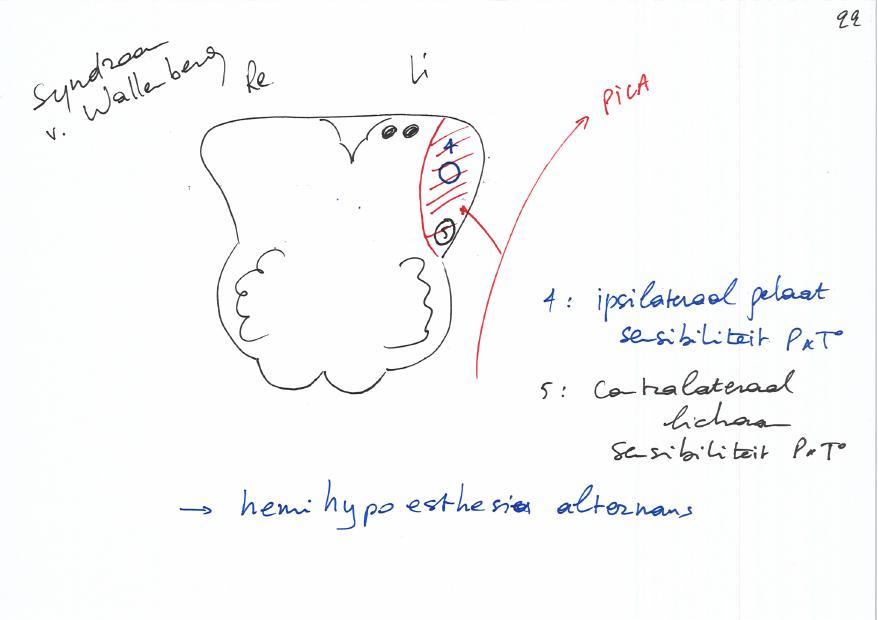 22
Syndroom
v. Wallenberg
Re
Li
PICA
4
5
4: ipsilateraal gelaat
sensibiliteit P x T°
5: contralateraal
lichaam
sensibiliteit P x T°
→ hemihypoesthesia alternans